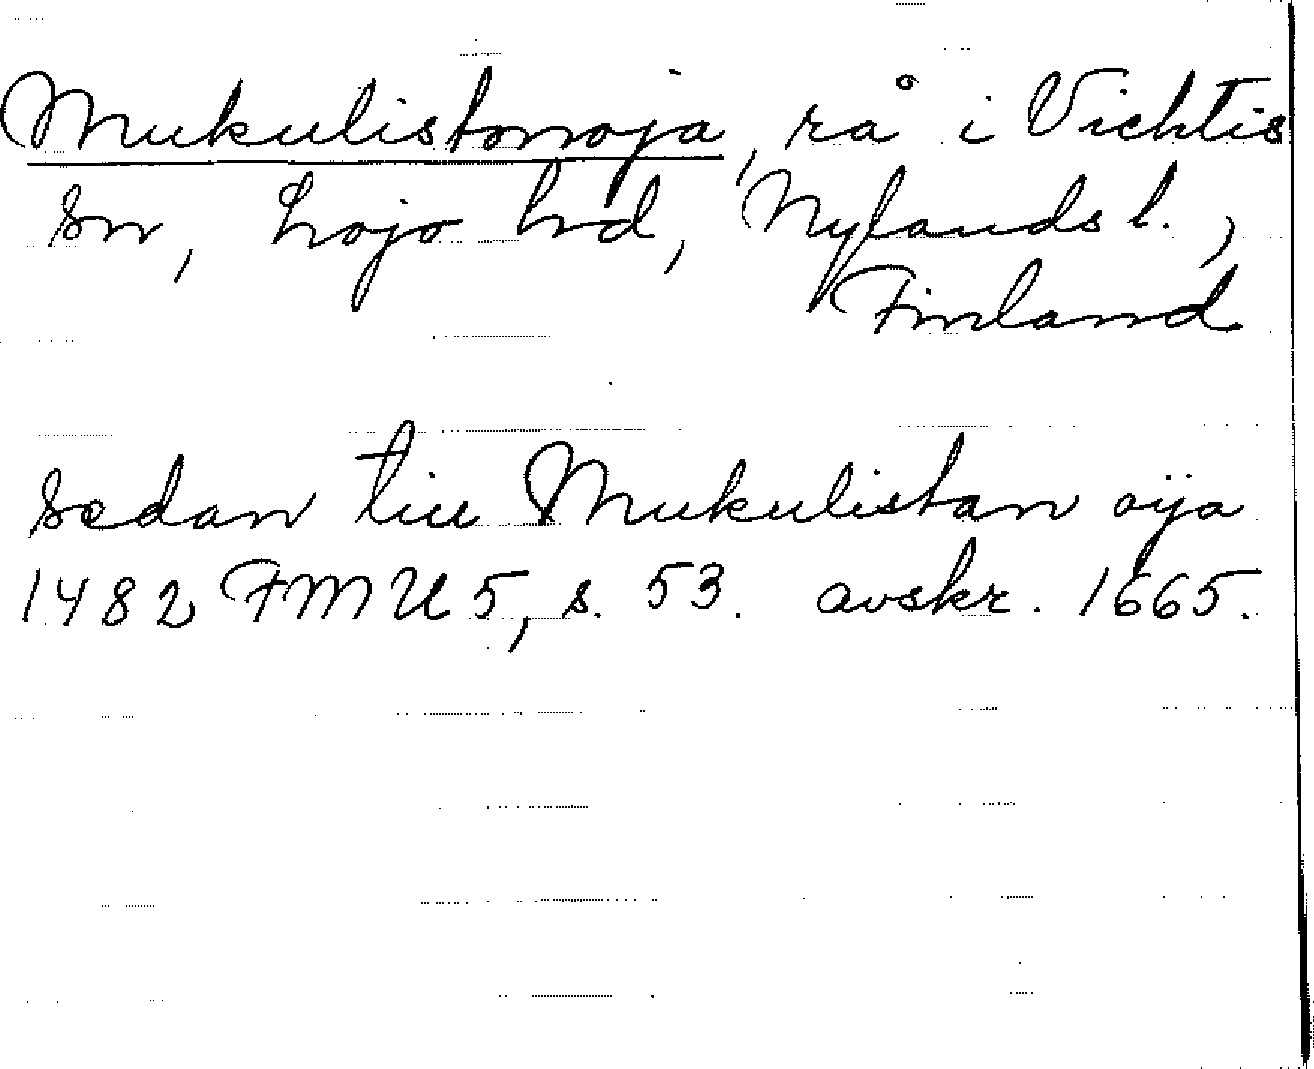 Mukulistonoja, rå i Vichtis
sn, Lojo hd, Nylands l.,
Finland
sedan till Mukulistan oija
1482 FMU 5, s. 53. avskr. 1665.